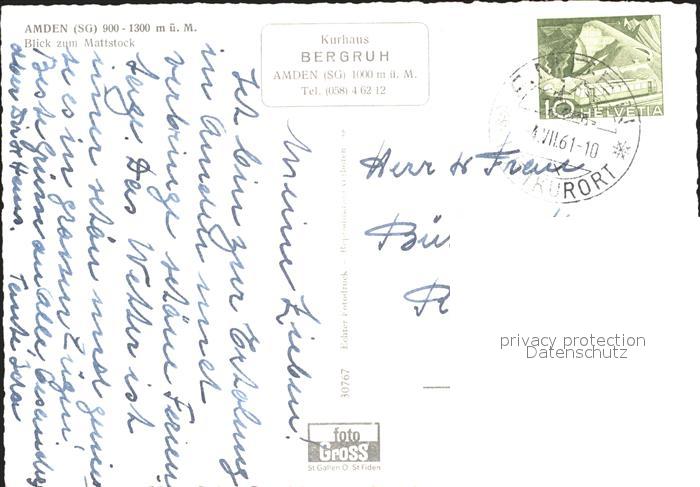 AMDEN (SG) 900 - 1300 m ü. M.
Blick zum Mattstock
Kurhaus
BERGRUH
AMDEN (SG) 1000 m ü. M.
Tel. (058) 4 62 12
10 HELVETIA
4.VII.61-10
KURORT
Meine Lieben,
Ich bin zur Erholung
in Amden und
verbringe schöne Ferien
tage. Das Wetter ist
immer schön und
es in grossen Zügen,
Beste Grüsse an alle,
Tante
Herr & Frau
Bü
30767 Echter Fotodruck - Reproduktion verboten
foto
Gross
St Gallen O St Fiden
privacy protection
Datenschutz